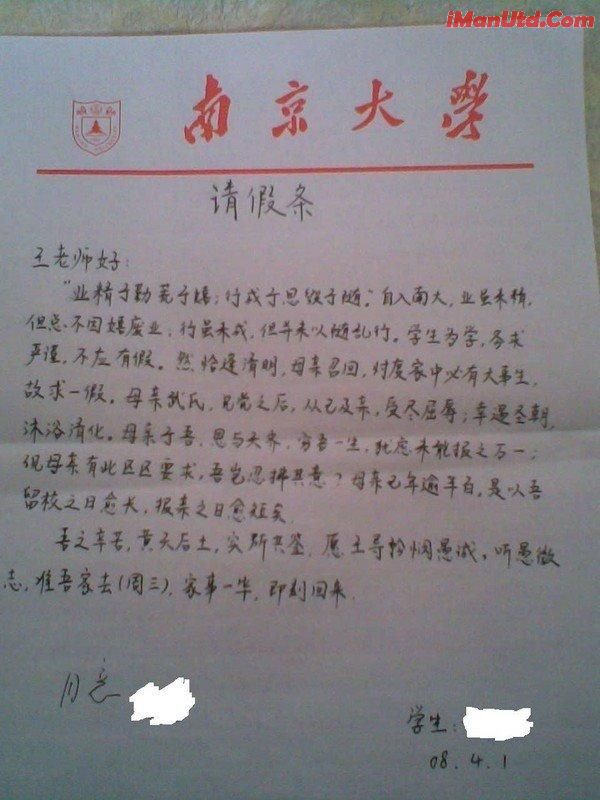 iManUtd.Com
南京大學
请假条
王老师好：
"业精于勤荒于嬉；行成于思毁于随。"自入南大，业虽未精，
但总不因嬉废业；行虽未成，但并未以随乱行。学生为学，务求
严谨，不应有假。然恰逢清明，母亲召回，忖度家中必有大事生，
故求一假。母亲武氏，兄党之后，从己及亲，受尽屈辱；幸遇圣朝，
沐浴清化。母亲于吾，恩与天齐，穷吾一生，犹恐未能报之万一；
倪母亲有此区区要求，吾岂忍拂其意？母亲已年逾半百，是以吾
留校之日愈长，报亲之日愈短矣。
吾之辛苦，黄天后土，实所共鉴，愿王导矜悯愚诚，听愚微
志，准吾家去(周三)，家事一毕，即刻回来。
同意
学生：
08.4.1